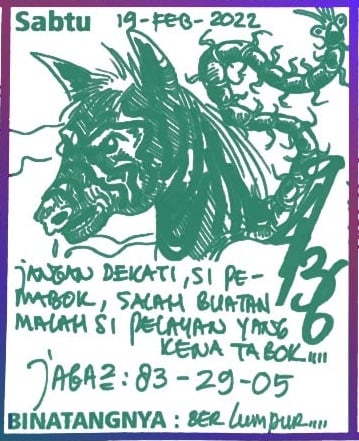 Sabtu 19-FEB-2022
JANGAN DEKATI, SI PE-
MABOK, SALAH BUATAN
MALAH SI PELAYAN YANG
KENA TABOK....
JAGA2: 83-29-05
BINATANGNYA : BER LUMPUR....